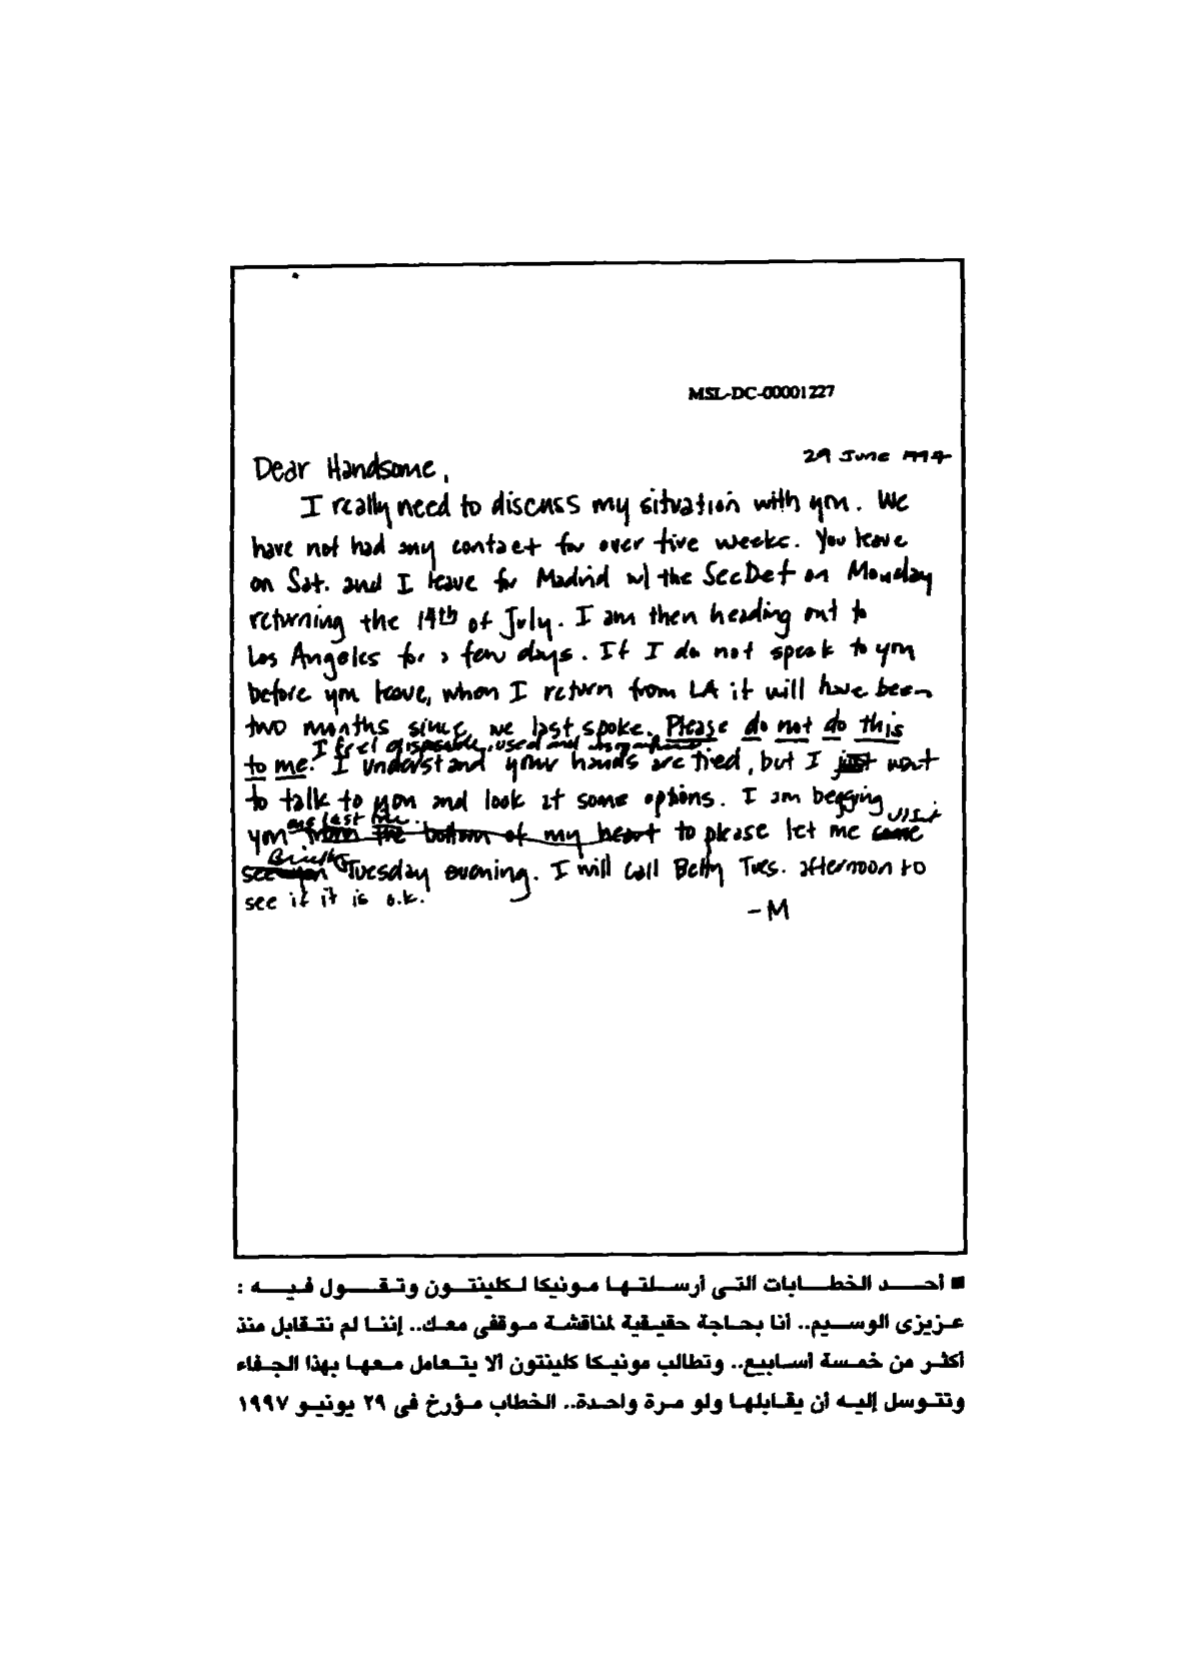 MSL-DC-00001227
29 June 1997
Dear Handsome,
I really need to discuss my situation with you. We
have not had any contact for over five weeks. You leave
on Sat. and I leave for Madrid w/ the SecDef on Monday
returning the 14th of July. I am then heading out to
Los Angeles for a few days. If I do not speak to you
before you leave, when I return from LA it will have been
two months since we last spoke. Please do not do this
I feel disposable, used and insignificant
to me. I understand your hands are tied, but I just want
to talk to you and look at some options. I am begging
one last time. visit
you from the bottom of my heart to please let me come
Briefly
see you Tuesday evening. I will call Betty Tues. afternoon to
see if it is o.k.
-M
■ أحد الخطابات التى أرسلتها مونيكا لكلينتون وتقول فيه :
عزيزى الوسيم.. أنا بحاجة حقيقية لمناقشة موقفى معك.. إننا لم نتقابل منذ
أكثر من خمسة أسابيع.. وتطالب مونيكا كلينتون ألا يتعامل معها بهذا الجفاء
وتتوسل إليه أن يقابلها ولو مرة واحدة.. الخطاب مؤرخ فى ٢٩ يونيو ١٩٩٧